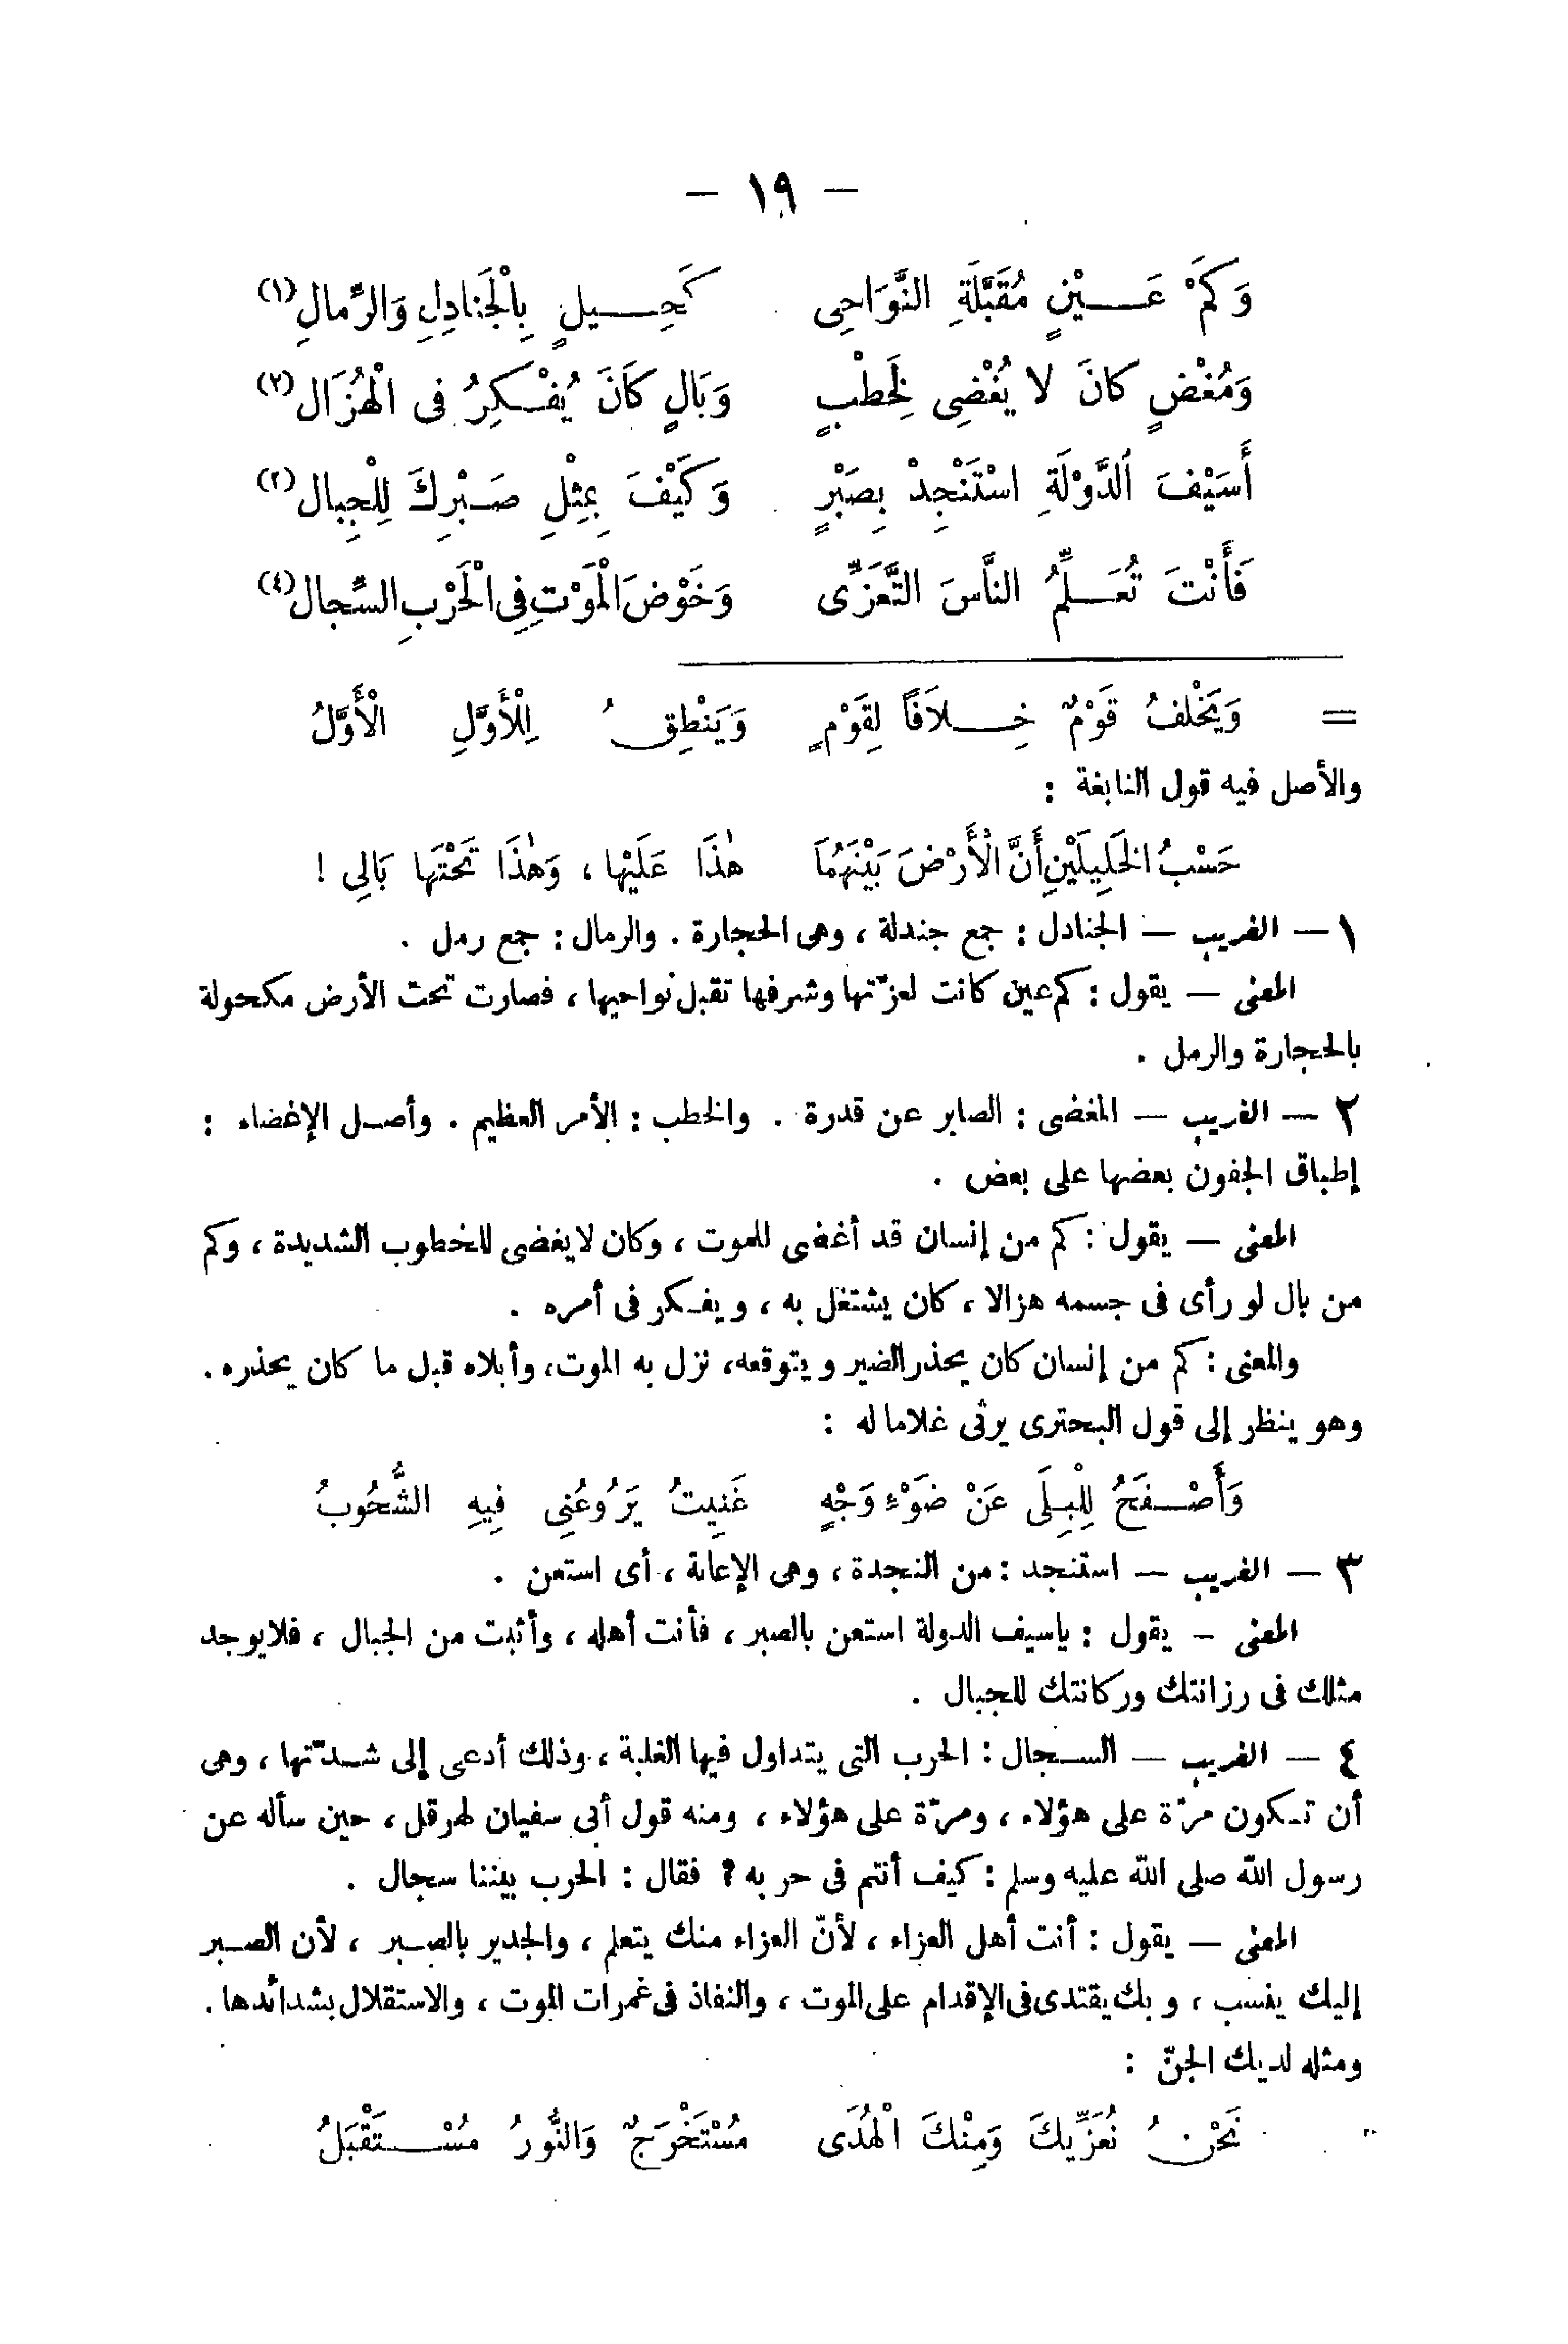 – ١٩ –
وَكَمْ عَـــيْنٍ مُقَبَّلَةِ النَّوَاحِى كَحِـــيلٍ بِالْجَنَادِلِ وَالرِّمالِ(١)
وَمُغْضٍ كانَ لا يُغْضِى لِخَطْبٍ وَبَالٍ كَانَ يُفْـكِرُ فى الْهُزَالِ(٢)
أَسَيْفَ الدَّوْلَةِ اسْتَنْجِدْ بِصَبْرٍ وَكَيْفَ بِمِثْلِ صَـبْرِكَ لِلْجِبالِ(٣)
فَأَنْتَ تُعَـــلِّمُ النَّاسَ التَّعَزِّى وَخَوْضَ الْمَوْتِ فِى الْحَرْبِ السِّجالِ(٤)
= وَيَخْلفُ قَوْمٌ خِـــلاَفًا لِقَوْمٍ وَيَنْطِقُ لِلْأَوَّلِ الْأَوَّلُ
والأصل فيه قول النابغة :
حَسْبُ الخَلِيلَيْنِ أَنَّ الْأَرْضَ بَيْنَهُمَا هٰذَا عَلَيْها ، وَهٰذَا تَحْتَها بَالِى !
١ – الغريب – الجنادل : جمع جندلة ، وهى الحجارة . والرمال : جمع رمل .
المعنى – يقول : كم عين كانت لعزّتها وشرفها تقبل نواحيها ، فصارت تحت الأرض مكحولة
بالحجارة والرمل .
٢ – الغريب – المغضى : الصابر عن قدرة . والخطب : الأمر العظيم . وأصـل الإغضاء :
إطباق الجفون بعضها على بعض .
المعنى – يقول : كم من إنسان قد أغضى للموت ، وكان لايغضى للخطوب الشديدة ، وكم
من بال لو رأى فى جسمه هزالا ، كان يشتغل به ، ويفـكر فى أمره .
والمعنى : كم من إنسان كان يحذر الضير ويتوقعه، نزل به الموت، وأبلاه قبل ما كان يحذره .
وهو ينظر إلى قول البحترى يرثى غلاما له :
وَأَصْـــفَحُ لِلْبِـلَى عَنْ ضَوْءِ وَجْهٍ غَنِيتُ يَرُوعُنِى فِيهِ الشُّحُوبُ
٣ – الغريب – استنجد : من النجدة ، وهى الإعانة ، أى استعن .
المعنى – يقول : ياسيف الدولة استعن بالصبر ، فأنت أهله ، وأثبت من الجبال ، فلايوجد
مثلك فى رزانتك وركانتك للجبال .
٤ – الغريب – السـجال : الحرب التى يتداول فيها الغلبة ، وذلك أدعى إلى شـدّتها ، وهى
أن تـكون مرّة على هؤلاء ، ومرّة على هؤلاء ، ومنه قول أبى سفيان لهرقل ، حين سأله عن
رسول الله صلى الله عليه وسلم : كيف أنتم فى حربه ؟ فقال : الحرب بيننا سجال .
المعنى – يقول : أنت أهل العزاء ، لأنّ العزاء منك يتعلم ، والجدير بالصـبر ، لأن الصـبر
إليك ينسب ، وبك يقتدى فى الإقدام على الموت ، والنفاذ فى غمرات الموت ، والاستقلال بشدائدها .
ومثله لديك الجنّ :
نَحْنُ نُعَزِّيكَ وَمِنْكَ الْهُدَى مُسْتَخْرَجٌ وَالنُّورُ مُسْـــتَقْبَلُ